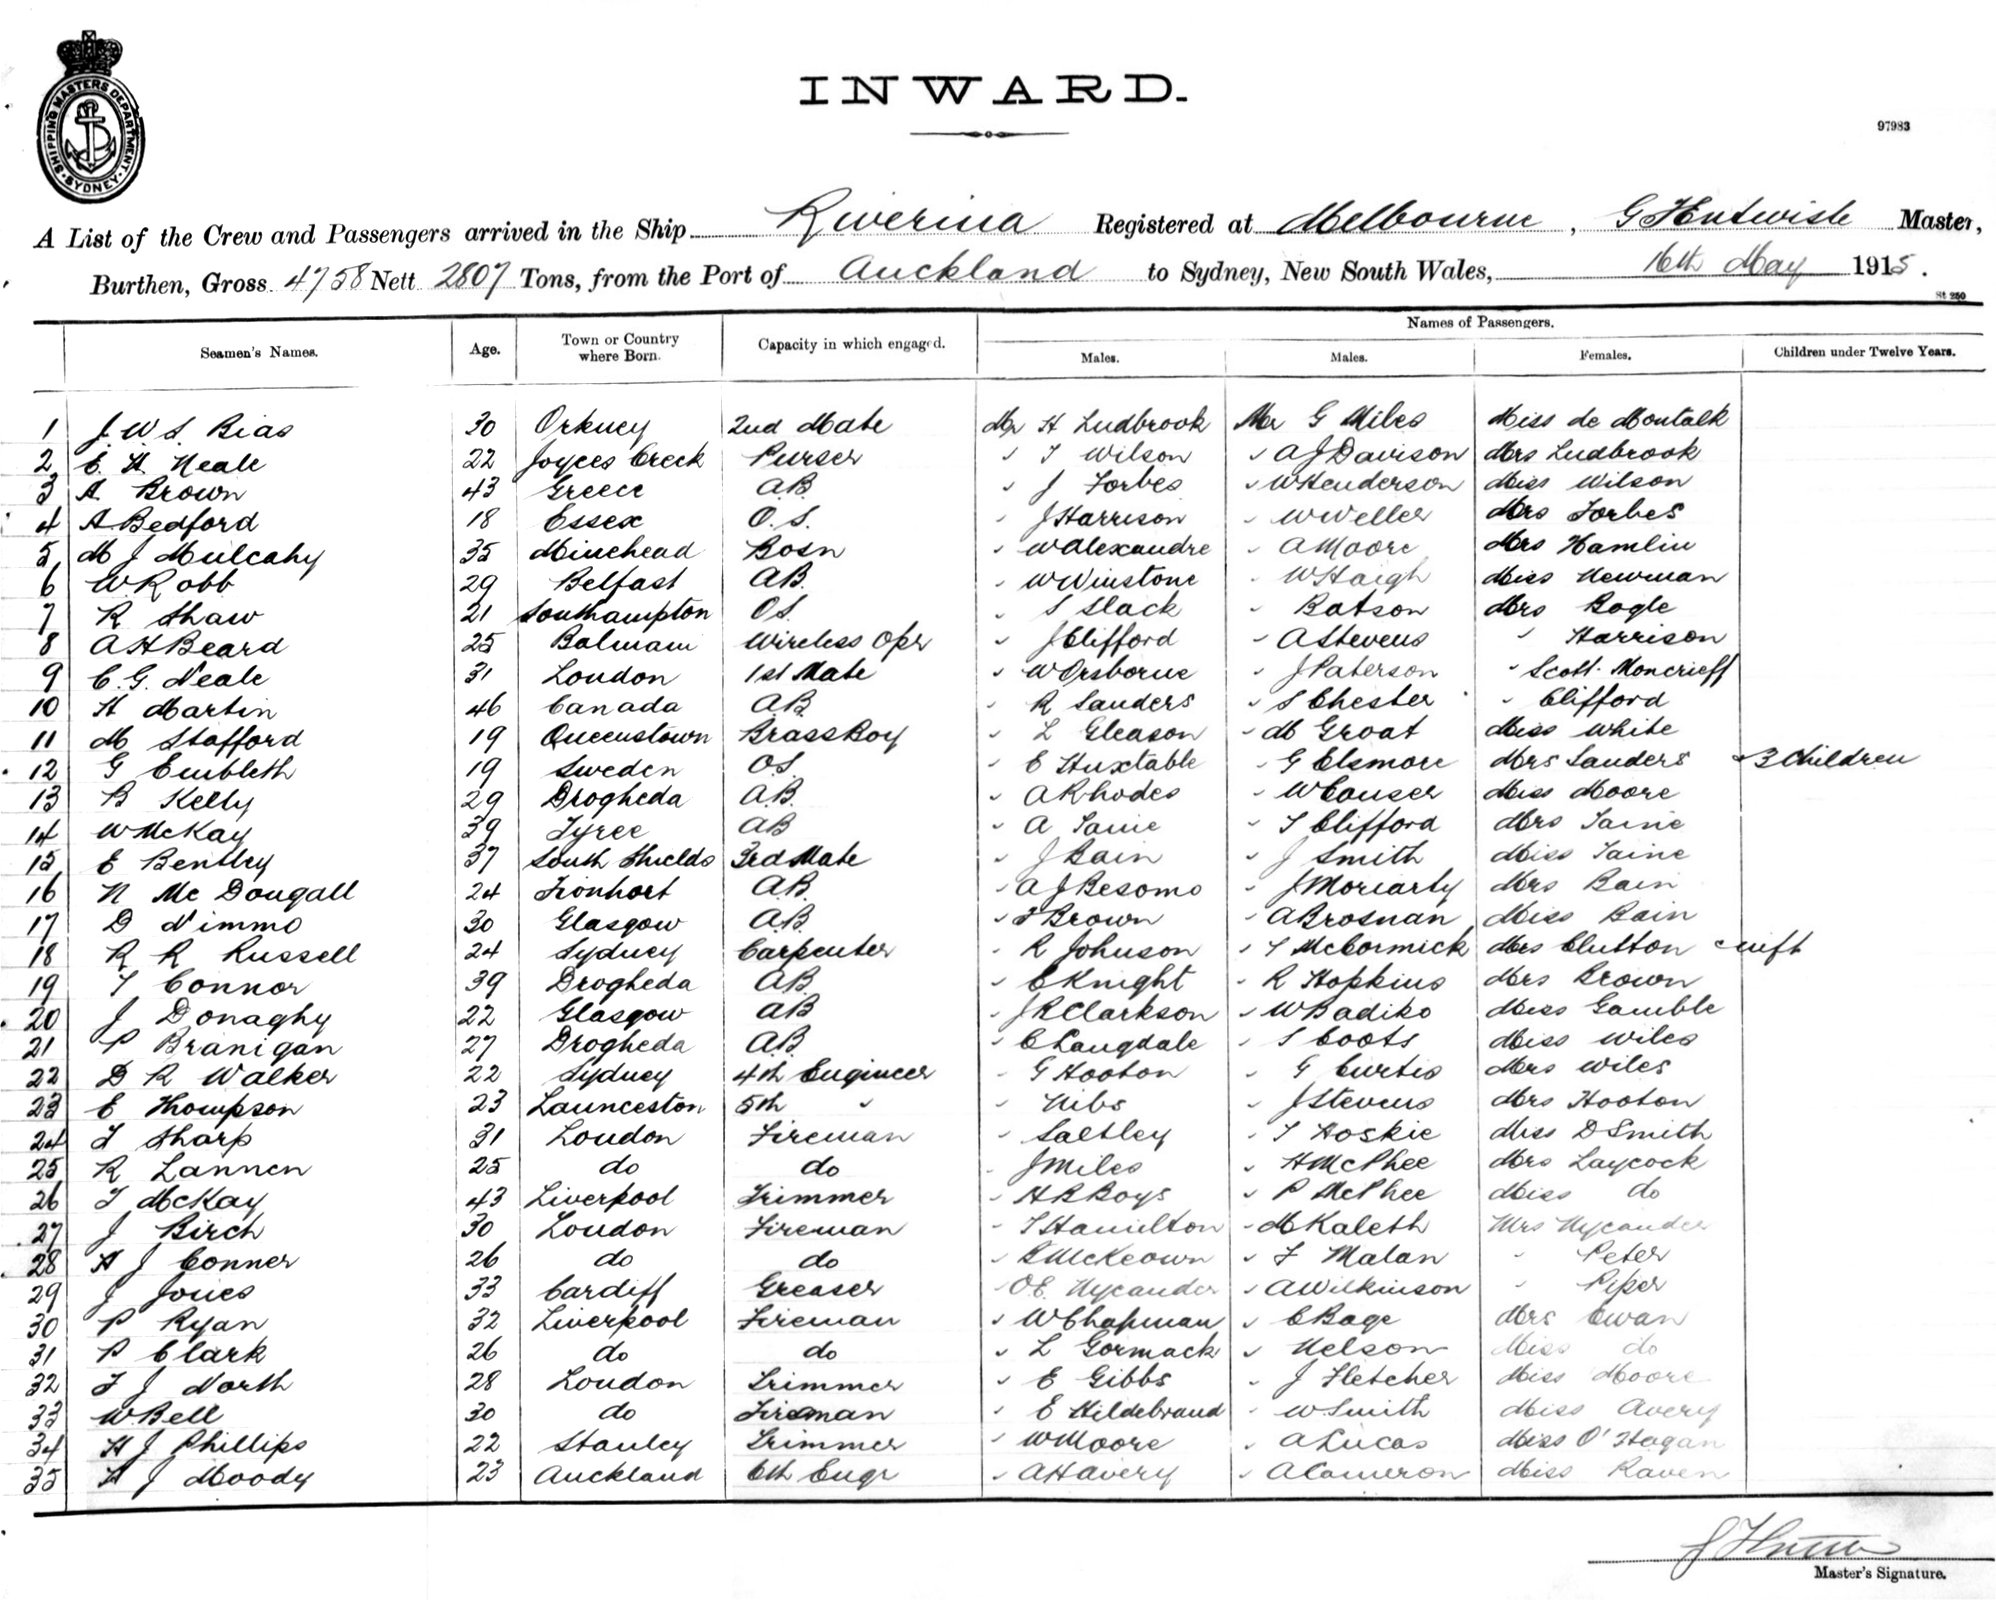 SHIPPING MASTERS DEPARTMENT. SYDNEY.
INWARD.
97983
A List of the Crew and Passengers arrived in the Ship Riverina Registered at Melbourne, G H Entwisle Master,
Burthen, Gross 4758 Nett 2807 Tons, from the Port of Auckland to Sydney, New South Wales, 16th May 1915.
St 250
Seamen's Names. Age. Town or Country where Born. Capacity in which engaged. Names of Passengers.
Males. Males. Females. Children under Twelve Years.
1 J. W. S. Bias 30 Orkney 2nd Mate Mr H Ludbrook Mr G Miles Miss de Montalk
2 E. H. Neale 22 Joyces Creek Purser " T Wilson " A J Davison Mrs Ludbrook
3 A. Brown 43 Greece A.B. " J Forbes " W Henderson Miss Wilson
4 A Bedford 18 Essex O.S. " J Harrison " W Weller Mrs Forbes
5 M J Mulcahy 35 Minehead Bosn " W Alexandre " A Moore Mrs Hamlin
6 W. Robb 29 Belfast A.B. " W Winstone " W Haigh Miss Newman
7 R Shaw 21 Southampton O.S. " S Slack " Batson Mrs Bogle
8 A H Beard 25 Balmain Wireless Opr " J Clifford " A Stevens " Harrison
9 C. G. Neale 31 London 1st Mate " W Orsborne " J Paterson " Scott-Moncrieff
10 H Martin 46 Canada A.B. " R Sanders " S Chester " Clifford
11 M Stafford 19 Queenstown Brass Boy " L Gleason " M Groat Miss White
12 G Embleth 19 Sweden O.S. " E Huxtable " G Elsmore Mrs Sanders & 3 Children
13 B Kelly 29 Drogheda A.B. " A Rhodes " W Causer Miss Moore
14 W McKay 39 Tyree AB " A Taine " T Clifford Mrs Taine
15 E Bentley 37 South Shields 3rd Mate " J Bain " J Smith Miss Taine
16 N McDougall 24 Fionhort A.B. " A J Besomo " J Moriarty Mrs Bain
17 D Nimmo 30 Glasgow A.B. " F Brown " A Brosnan Miss Bain
18 R R Russell 24 Sydney Carpenter " R Johnson " T McCormick Mrs Clutton & inft
19 T Connor 39 Drogheda A.B. " C Knight " R Hopkins Mrs Brown
20 J Donaghy 22 Glasgow AB " J R Clarkson " W Badiko Miss Gamble
21 P Branigan 27 Drogheda A.B. " C Langdale " S Coots Miss Wiles
22 D R Walker 22 Sydney 4th Engineer " G Hooton " G Curtis Mrs Wiles
23 E Thompson 23 Launceston 5th " " Nibs " J Stevens Mrs Hooton
24 F Sharp 31 London Fireman " Saltley " T Hoskie Miss D Smith
25 R Lannen 25 do do " J Miles " H McPhee Mrs Laycock
26 T McKay 43 Liverpool Trimmer " H B Boys " P McPhee Miss do
27 J Birch 30 London Fireman " T Hamilton " M Kaleth Mrs Nycander
28 H J Conner 26 do do " R McKeown " F Malan " Peter
29 J Jones 33 Cardiff Greaser " O E Nycander " A Wilkinson " Piper
30 P Ryan 32 Liverpool Fireman " W Chapman " C Bage Mrs Ewan
31 P Clark 26 do do " L Gormack " Nelson Miss do
32 F J North 28 London Trimmer " E Gibbs " J Fletcher Miss Moore
33 W. Bell 30 do Fireman " E Hildebrand " W Smith Miss Avery
34 H J Phillips 22 Stanley Trimmer " W Moore " A Lucas Miss O'Hagan
35 H J Moody 23 Auckland 6th Engr " A H Avery " A Cameron Miss Raven
Master's Signature.